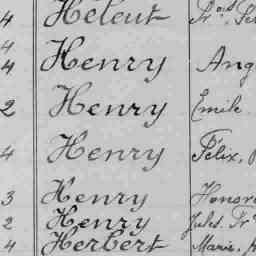 4 Héleut Fr.ois
4
4 Henry Ang
2 Henry Emile
4 Henry Félix,
3 Henry Honoré
2 Henry Jules. Fr
4 Herbert Marie.